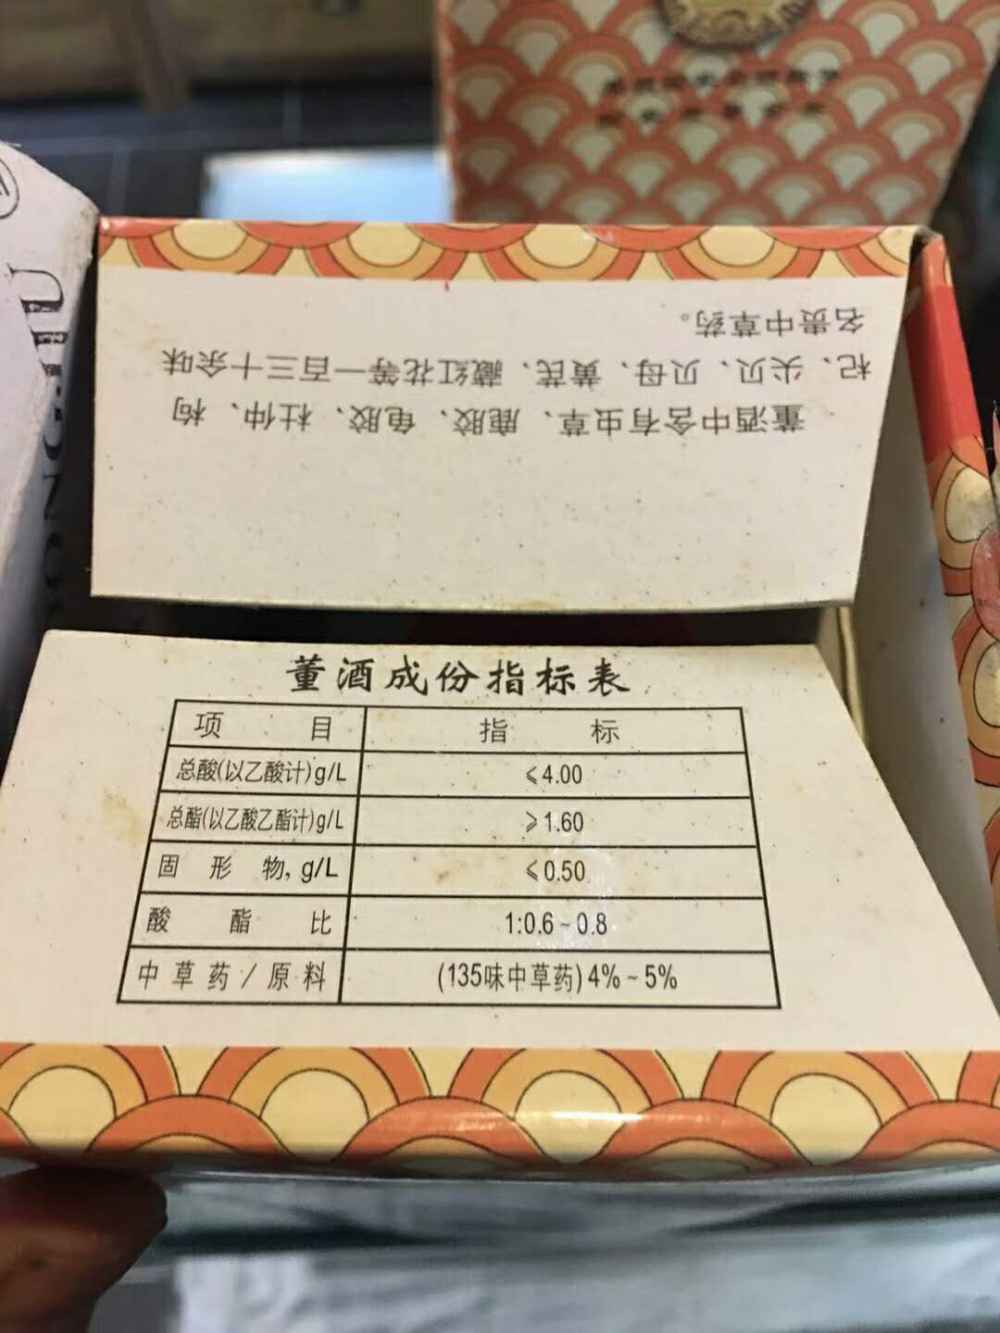 董酒中含有虫草、鹿胶、龟胶、杜仲、枸
杞、尖贝、贝母、黄芪、藏红花等一百三十余味
名贵中草药。
董酒成份指标表
项 目 指 标
总酸(以乙酸计)g/L ≤4.00
总酯(以乙酸乙酯计)g/L ≥1.60
固形物,g/L ≤0.50
酸 酯 比 1:0.6~0.8
中草药/原料 (135味中草药)4%~5%